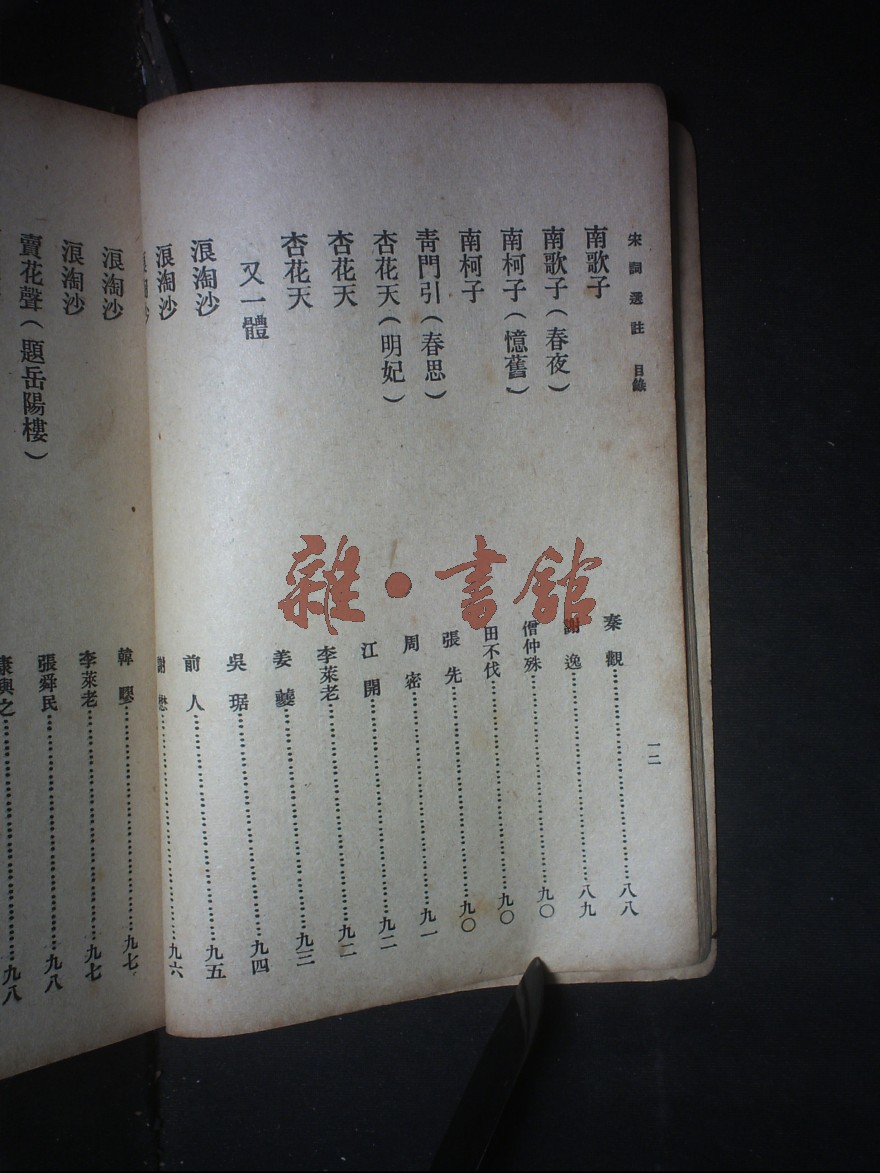 宋詞選註 目錄 一二
南歌子 秦觀 八八
南歌子（春夜） 謝逸 八九
南柯子（憶舊） 僧仲殊 九〇
南柯子 田不伐 九〇
青門引（春思） 張先 九〇
杏花天（明妃） 周密 九一
杏花天 江開 九二
杏花天 李萊老 九二
又一體 姜夔 九三
浪淘沙 吳琚 九四
浪淘沙 前人 九五
淘沙 謝懋 九六
浪淘沙 韓疁 九七
浪淘沙 李萊老 九七
賣花聲（題岳陽樓） 張舜民 九八
康與之 九八
雜·書館